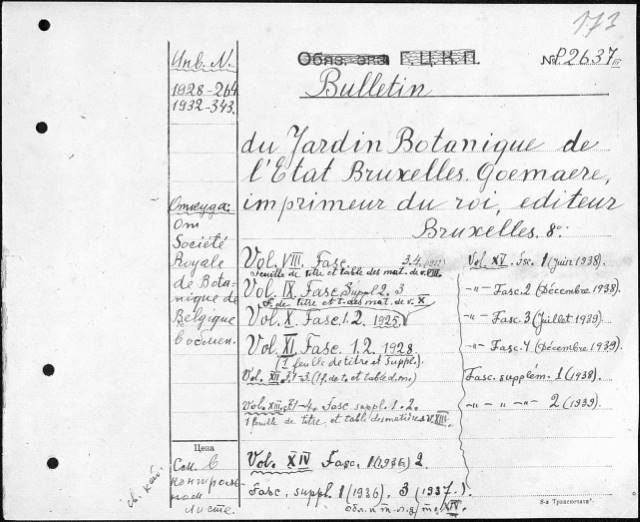 173
Обяз. экз. Г.Ц.К.П.
№ P2637 III
Инв. N.
1928-264
1932-343.
Bulletin
du Jardin Botanique de
l'Etat Bruxelles. Goemaere,
imprimeur du roi, editeur
Bruxelles. 8º.
Откуда:
От
Société
Royale
de Bota-
nique de
Belgique
в обмен.
Vol. VIII. Fasc. 3.4.
feuille de titre et table des mat. de v. VIII.
Vol. IX. Fasc. Suppl 2. 3
f. de titre et t. des mat. de v. X
Vol. X. Fasc. 1.2. 1925.
Vol. XI. Fasc. 1.2. 1928.
(1 feuille de titre et Suppl.).
Vol. XII. F. 1-3. (1 f. de t. et table d.m.)
Vol. XIII. F. 1-4. Fasc suppl. 1.2.
1 feuille de titre et table des matières v. XIII.
Vol. XIV Fasc. 1 (1936) 2.
Fasc. suppl. 1 (1936). 3 (1937.).
обл. и т.-л. з/т. XIV.
Vol. XV. Fsc. 1 (Juin 1938).
-"- Fasc. 2 (Décembre 1938).
-"- Fasc. 3 (Juillet 1939).
-"- Fasc. 4 (Décembre 1939).
Fasc. supplém. 1 (1938).
-"- -"- -"- 2 (1939).
Цена
См. в
контроль-
ном
листе.
св. кат.
8-я Транспечать